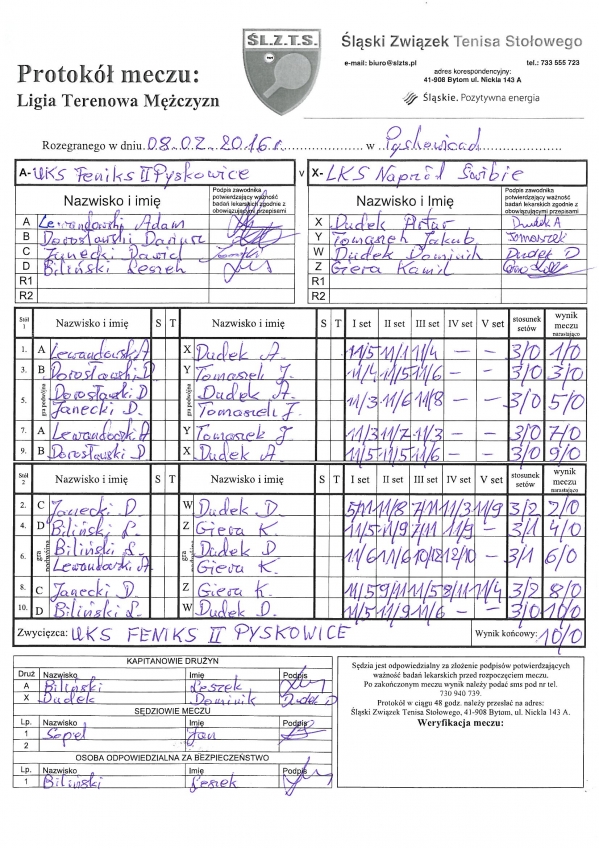 Ś.L.Z.T.S.
Śląski Związek Tenisa Stołowego
e-mail: biuro@slzts.pl tel.: 733 555 723
adres korespondencyjny:
41-908 Bytom ul. Nickla 143 A
Śląskie. Pozytywna energia
Protokół meczu:
Ligia Terenowa Mężczyzn
Rozegranego w dniu 08.02.2016r. w Pyskowicach
A- UKS Feniks II Pyskowice v X- LKS Naprzód Świbie
Nazwisko i imię Podpis zawodnika potwierdzający ważność badań lekarskich zgodnie z obowiązującymi przepisemi
Nazwisko i imię Podpis zawodnika potwierdzający ważność badań lekarskich zgodnie z obowiązującymi przepisemi
A Lewandowski Adam X Dudek Artur Dudek A
B Dorosławski Dariusz Y Tomasreh Jakub Tomaszek
C Janecki Dawid W Dudek Dominik Dudek D
D Biliński Leszek Z Giera Kamil
R1 R1
R2 R2
Stół 1 Nazwisko i imię S T Nazwisko i imię S T I set II set III set IV set V set stosunek setów wynik meczu narastająco
1. A Lewandowski A X Dudek A. 11/5 11/1 11/4 – – 3/0 1/0
3. B Dorosławski D. Y Tomasreh J. 11/4 11/5 11/6 – – 3/0 3/0
5. gra podwójna Dorosławski D. Dudek A. 11/3 11/6 11/8 – – 3/0 5/0
Janecki D. Tomasreh J.
7. A Lewandowski A Y Tomasreh J. 11/3 11/2 11/3 – – 3/0 7/0
9. B Dorosławski D X Dudek A 11/5 11/5 11/6 – – 3/0 9/0
Stół 2 Nazwisko i imię S T Nazwisko i imię S T I set II set III set IV set V set stosunek setów wynik meczu narastająco
2. C Janecki D. W Dudek D. 5/11 11/8 7/11 11/3 11/9 3/2 2/0
4. D Biliński L. Z Giera K. 11/5 11/9 7/11 11/9 – 3/1 4/0
6. gra podwójna Biliński L. gra podwójna Dudek D 11/6 11/6 10/12 12/10 – 3/1 6/0
Lewandowski A. Giera K.
8. C Janecki D. Z Giera K. 11/5 9/11 11/5 8/11 11/4 3/2 8/0
10. D Biliński L. W Dudek D. 11/5 11/9 11/6 – – 3/0 10/0
Zwycięzca: UKS FENIKS II PYSKOWICE Wynik końcowy: 10/0
KAPITANOWIE DRUŻYN
Druż Nazwisko Imię Podpis
A Biliński Leszek
X Dudek Dominik Dudek D
SĘDZIOWIE MECZU
Lp. Nazwisko Imię Podpis
1 Sopel Jan
2
OSOBA ODPOWIEDZIALNA ZA BEZPIECZEŃSTWO
Lp. Nazwisko Imię Podpis
1 Biliński Leszek
Sędzia jest odpowiedzialny za złożenie podpisów potwierdzających
ważność badań lekarskich przed rozpoczęciem meczu.
Po zakończonym meczu wynik należy podać sms pod nr tel.
730 940 739.
Protokół w ciągu 48 godz. należy przesłać na adres:
Śląski Związek Tenisa Stołowego, 41-908 Bytom, ul. Nickla 143 A.
Weryfikacja meczu: